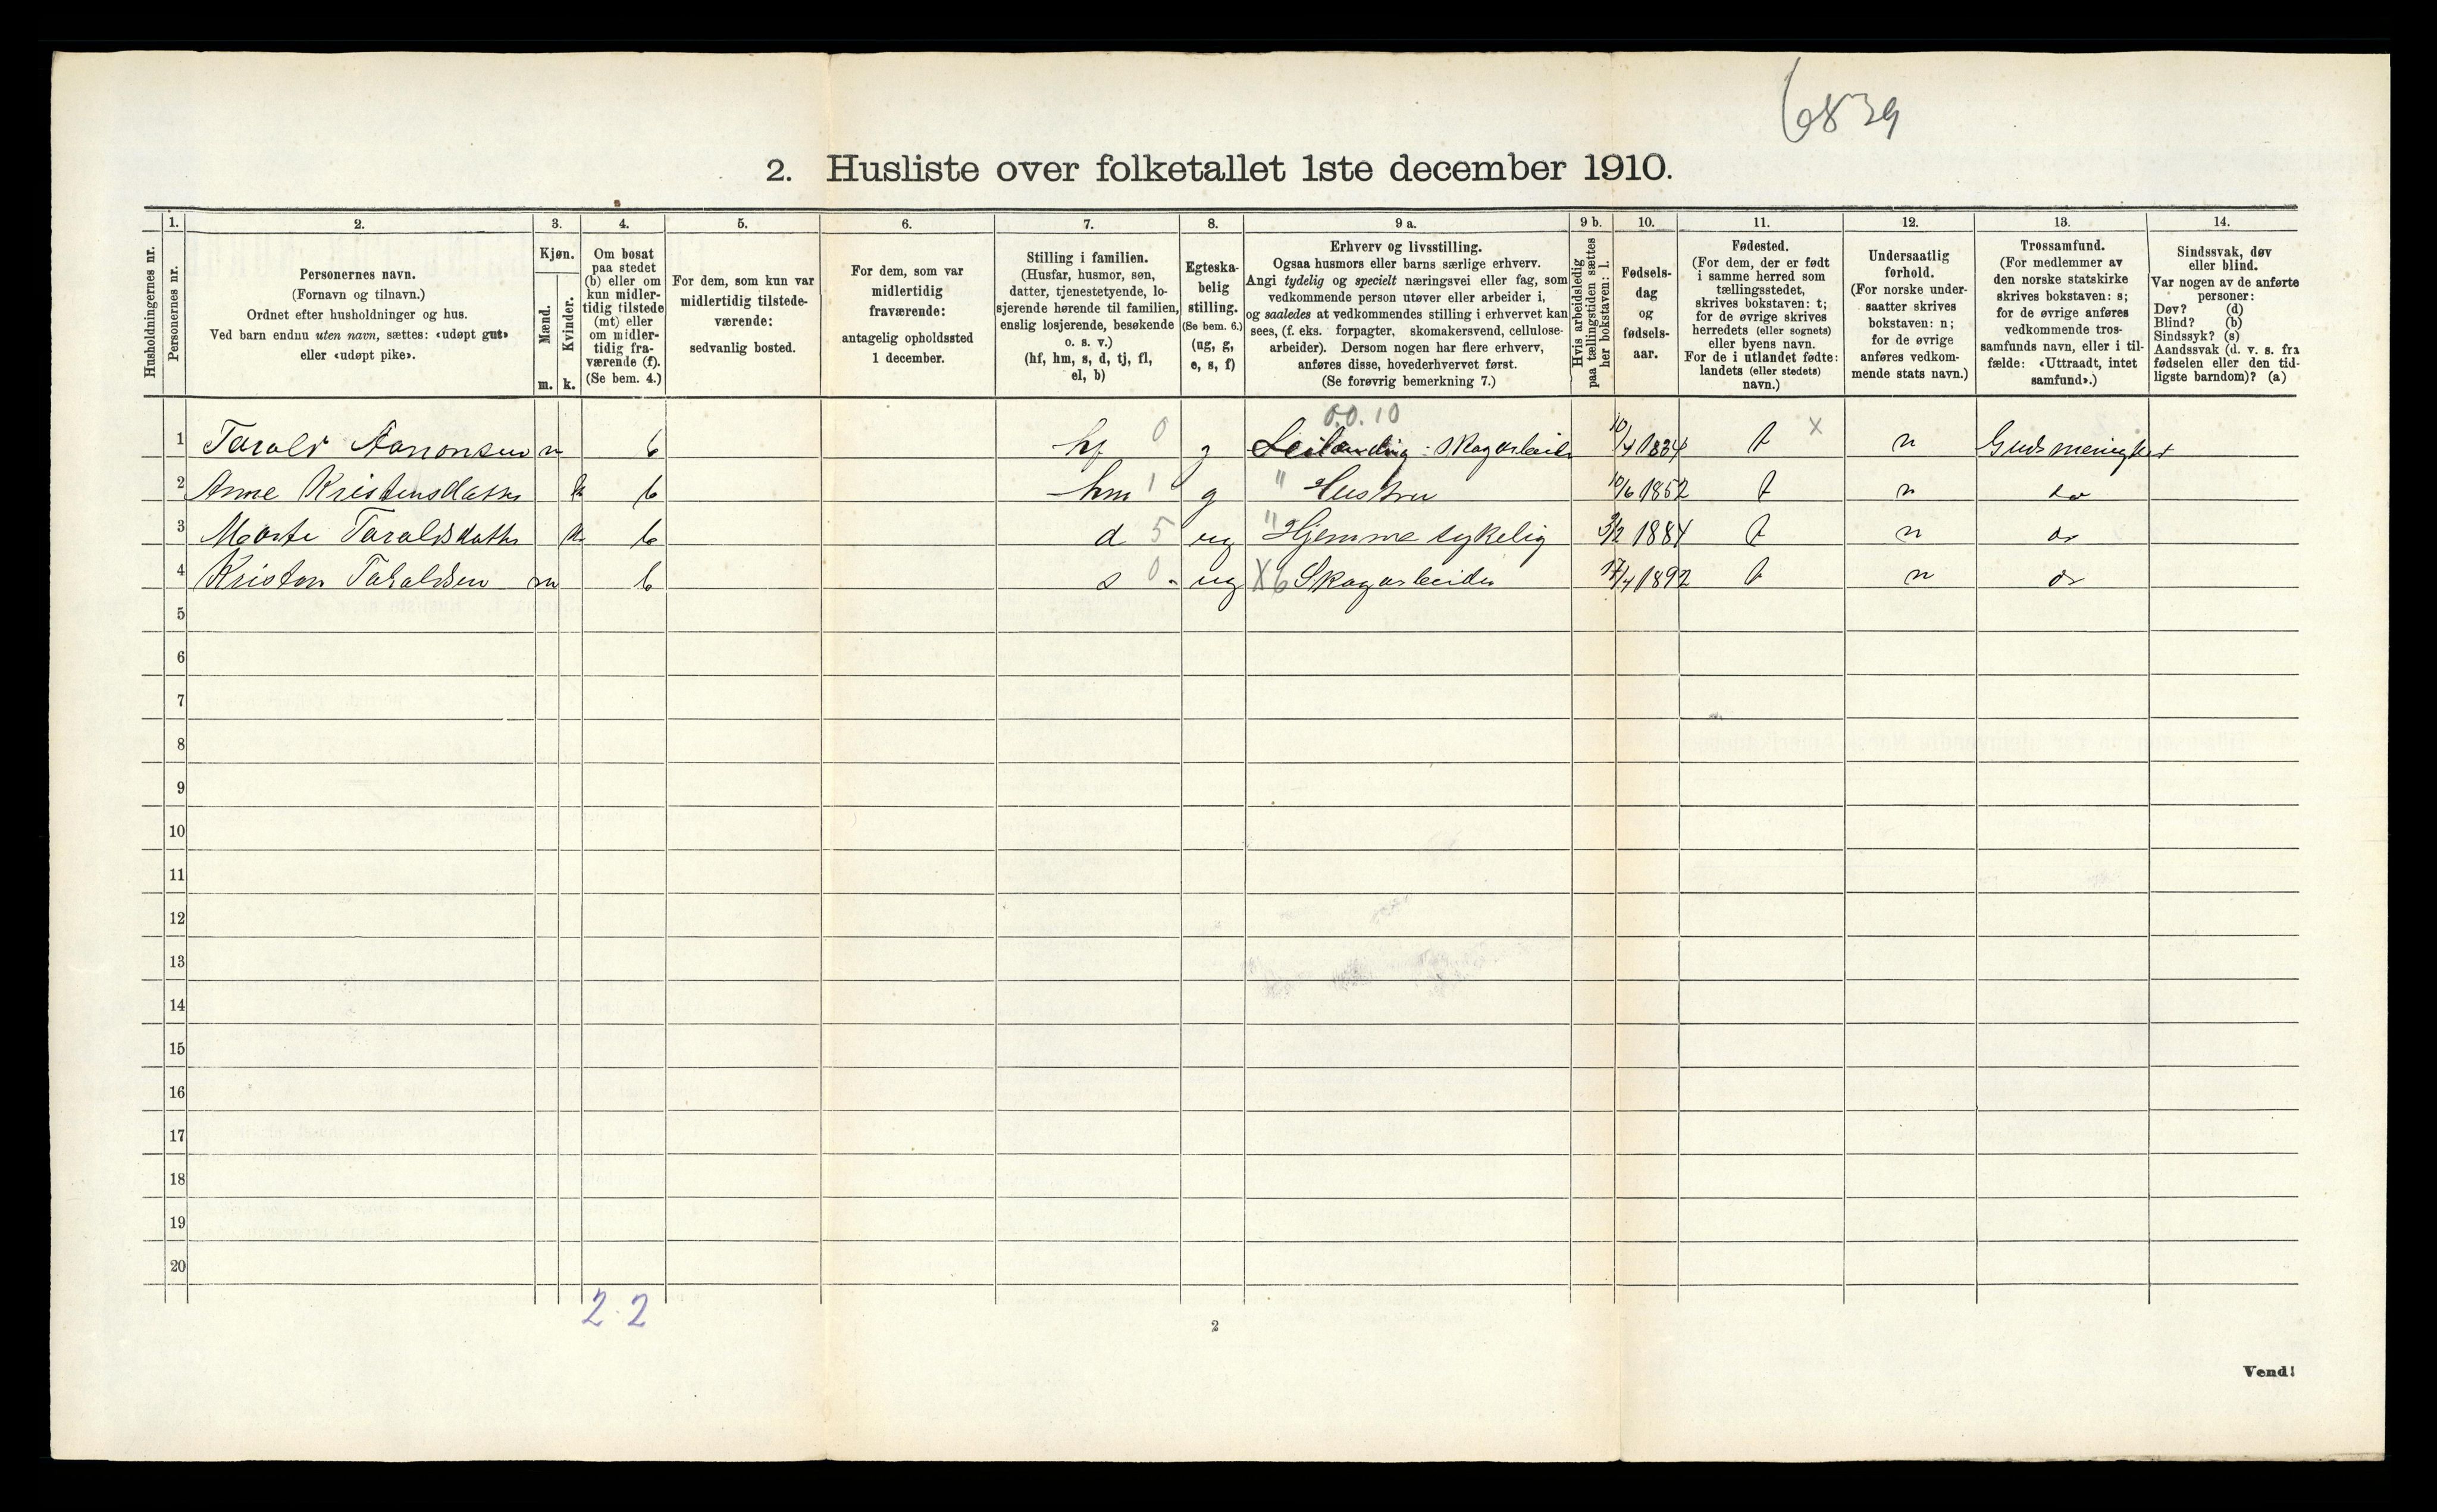 6839
2. Husliste over folketallet 1ste december 1910.
Husholdningernes nr.
1.
Personernes nr.
2.
Personernes navn.
(Fornavn og tilnavn.)
Ordnet efter husholdninger og hus.
Ved barn endnu uten navn, sættes: «udøpt gut»
eller «udøpt pike».
3.
Kjøn.
Mænd.
Kvinder.
m. k.
4.
Om bosat
paa stedet
(b) eller om
kun midler-
tidig tilstede
(mt) eller
om midler-
tidig fra-
værende (f).
(Se bem. 4.)
5.
For dem, som kun var
midlertidig tilstede-
værende:
sedvanlig bosted.
6.
For dem, som var
midlertidig
fraværende:
antagelig opholdssted
1 december.
7.
Stilling i familien.
(Husfar, husmor, søn,
datter, tjenestetyende, lo-
sjerende hørende til familien,
enslig losjerende, besøkende
o. s. v.)
(hf, hm, s, d, tj, fl,
el, b)
8.
Egteska-
belig
stilling.
(Se bem. 6.)
(ug, g,
e, s, f)
9 a.
Erhverv og livsstilling.
Ogsaa husmors eller barns særlige erhverv.
Angi tydelig og specielt næringsvei eller fag, som
vedkommende person utøver eller arbeider i,
og saaledes at vedkommendes stilling i erhvervet kan
sees, (f. eks. forpagter, skomakersvend, cellulose-
arbeider). Dersom nogen har flere erhverv,
anføres disse, hovederhvervet først.
(Se forøvrig bemerkning 7.)
9 b.
Hvis arbeidsledig
paa tællingstiden sættes
her bokstaven: l.
10.
Fødsels-
dag
og
fødsels-
aar.
11.
Fødested.
(For dem, der er født
i samme herred som
tællingsstedet,
skrives bokstaven: t;
for de øvrige skrives
herredets (eller sognets)
eller byens navn.
For de i utlandet fødte:
landets (eller stedets)
navn.)
12.
Undersaatlig
forhold.
(For norske under-
saatter skrives
bokstaven: n;
for de øvrige
anføres vedkom-
mende stats navn.)
13.
Trossamfund.
(For medlemmer av
den norske statskirke
skrives bokstaven: s;
for de øvrige anføres
vedkommende tros-
samfunds navn, eller i til-
fælde: «Uttraadt, intet
samfund».)
14.
Sindssvak, døv
eller blind.
Var nogen av de anførte
personer:
Døv? (d)
Blind? (b)
Sindssyk? (s)
Aandssvak (d. v. s. fra
fødselen eller den tid-
ligste barndom)? (a)
0.0.10
1 Tarald Aanonsen m b hf 0 g Leilending Skogarbeid 10/4 1834 t x n Guds menighet
2 Anne Kristensdatter k b hm 1 g " Hustru 10/6 1852 t n do
3 Marte Taraldsdatter k b d 5 ug " Hjemme sykelig 3/2 1884 t n do
4 Kristen Taraldsen m b s 0 - ug X6 Skogarbeider 17/4 1892 t n do
5
6
7
8
9
10
11
12
13
14
15
16
17
18
19
20
2. 2
2
Vend!